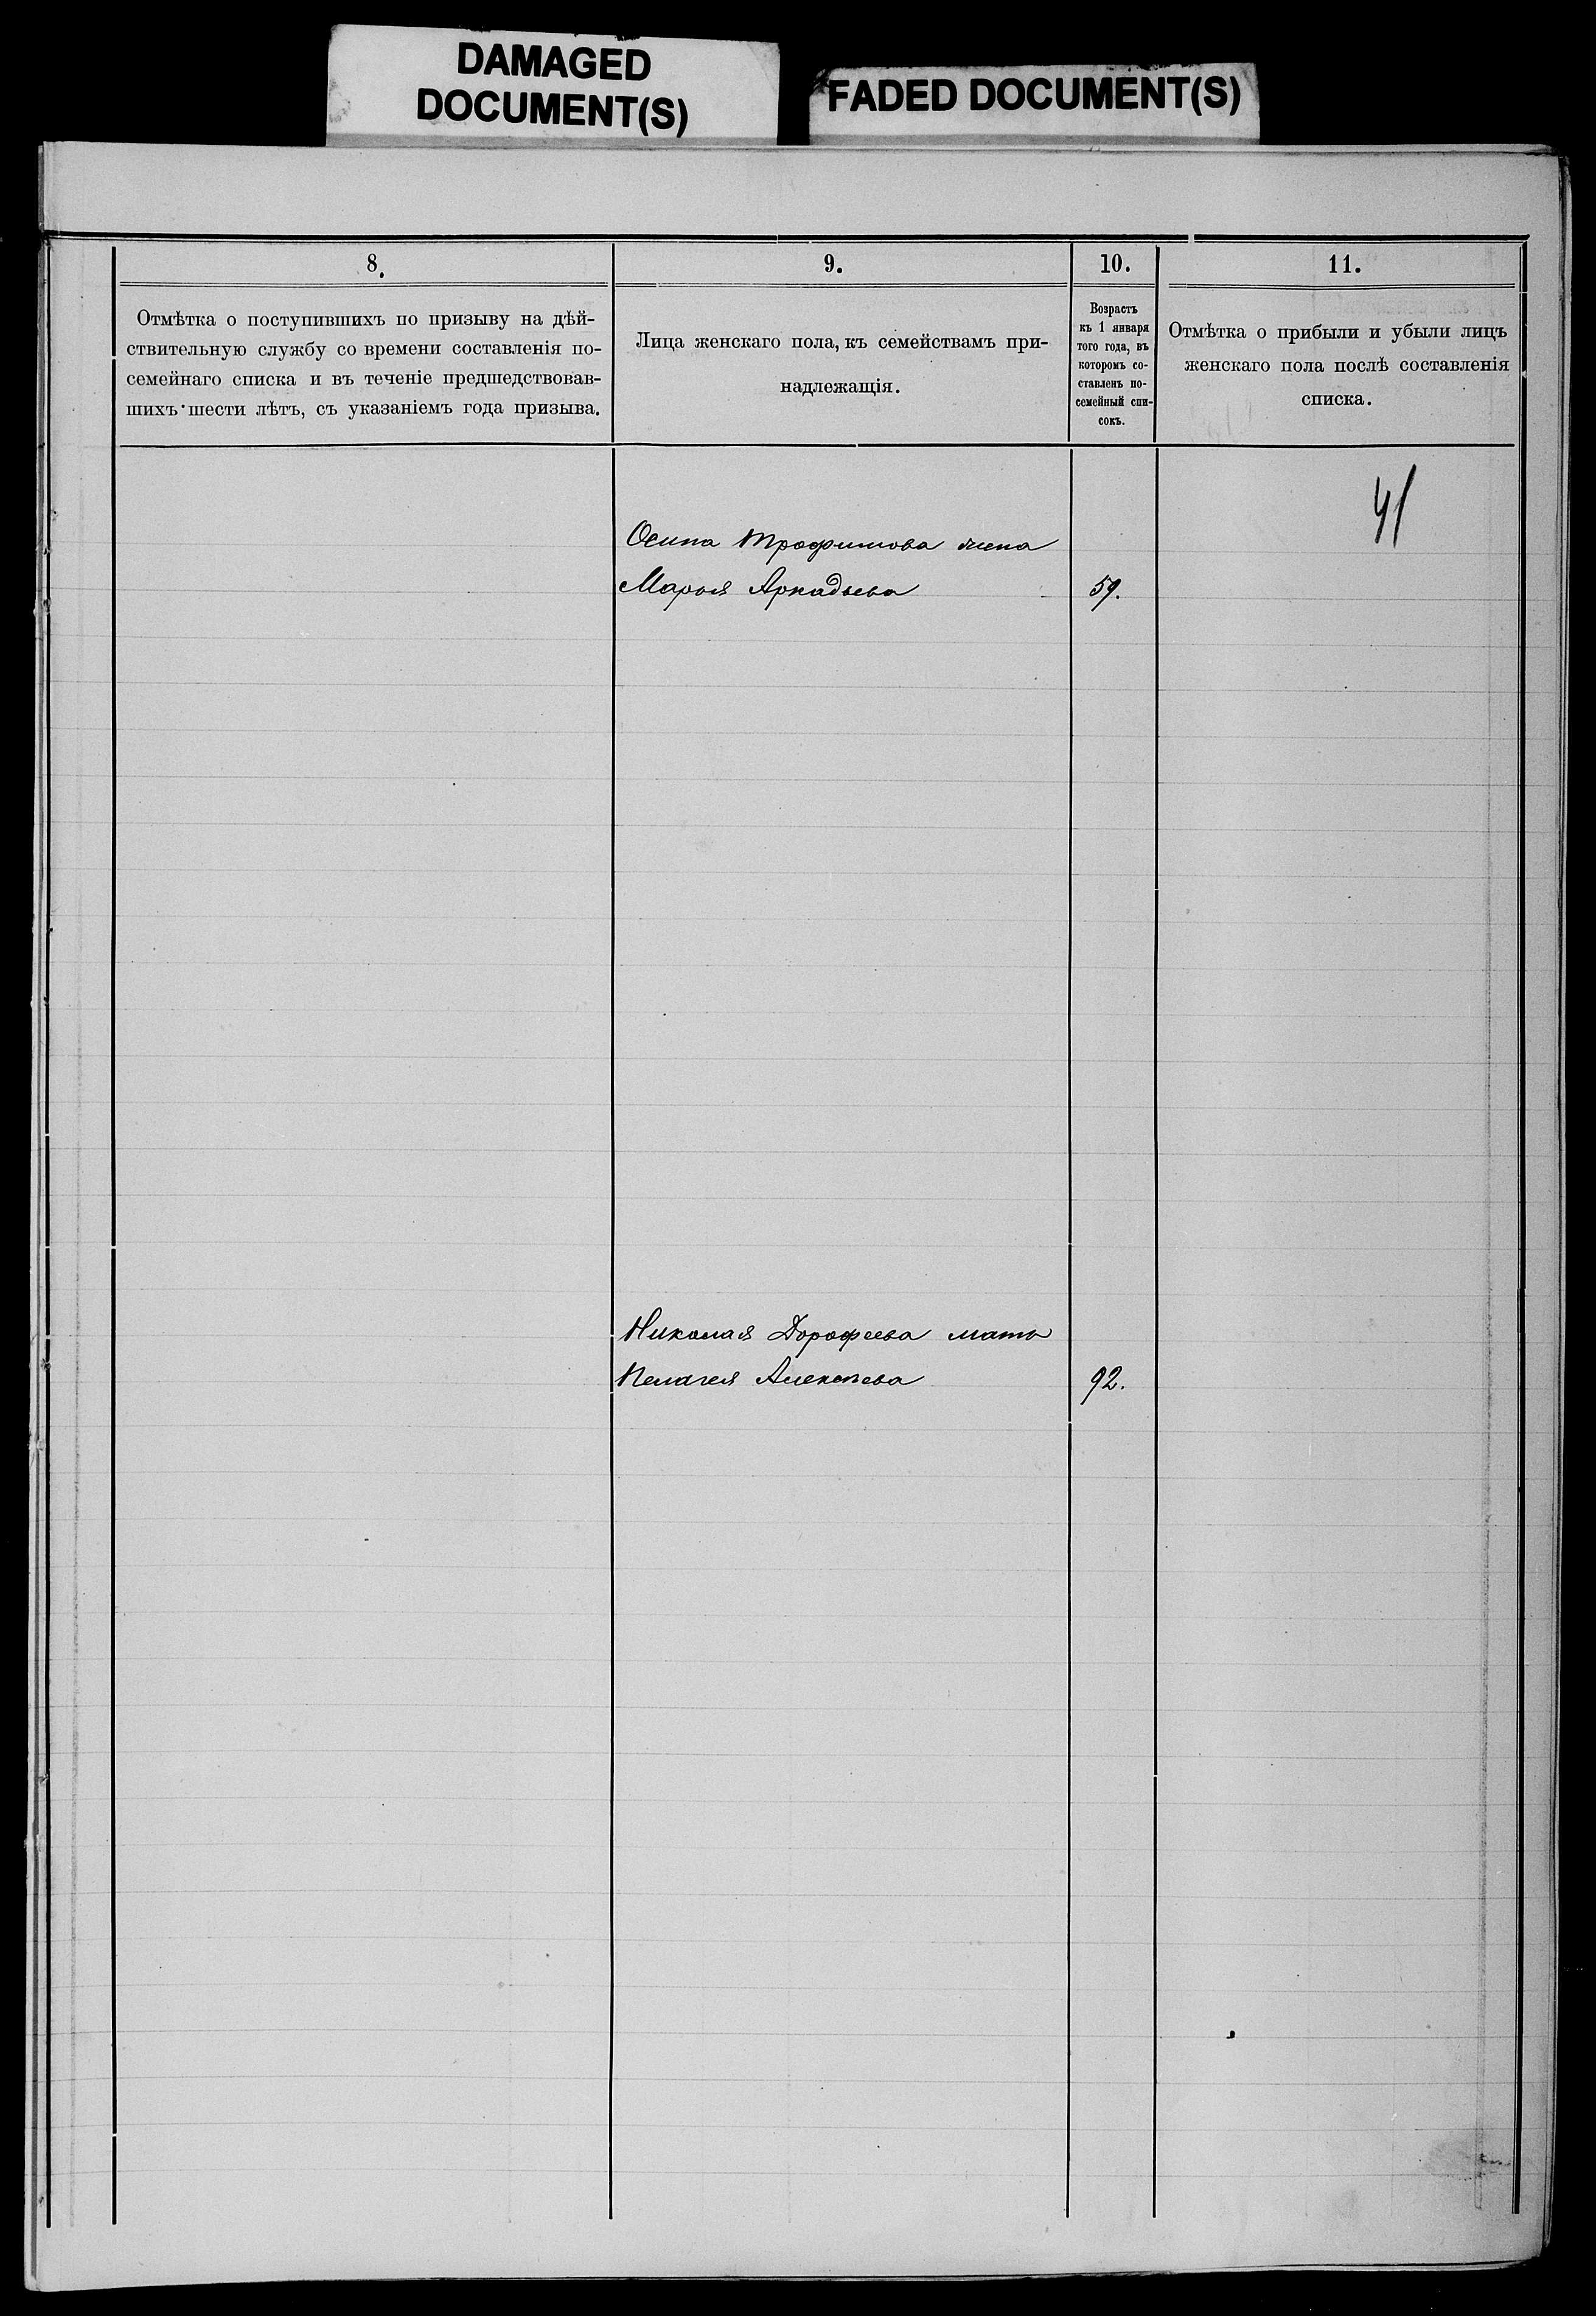 DAMAGED
DOCUMENT(S)
FADED DOCUMENT(S)
8.
Отмѣтка о поступившихъ по призыву на дѣй-
ствительную службу со времени составленія по-
семейнаго списка и въ теченіе предшедствовав-
шихъ шести лѣтъ, съ указаніемъ года призыва.
9.
Лица женскаго пола, къ семействамъ при-
надлежащія.
10.
Возрастъ
къ 1 января
того года, въ
которомъ со-
ставленъ по-
семейный спи-
сокъ.
11.
Отмѣтка о прибыли и убыли лицъ
женскаго пола послѣ составленія
списка.
41
Осипа Трофимова жена
Марья Аркадьева 59.
Николая Дорофеева мать
Пелагея Алексѣева 92.